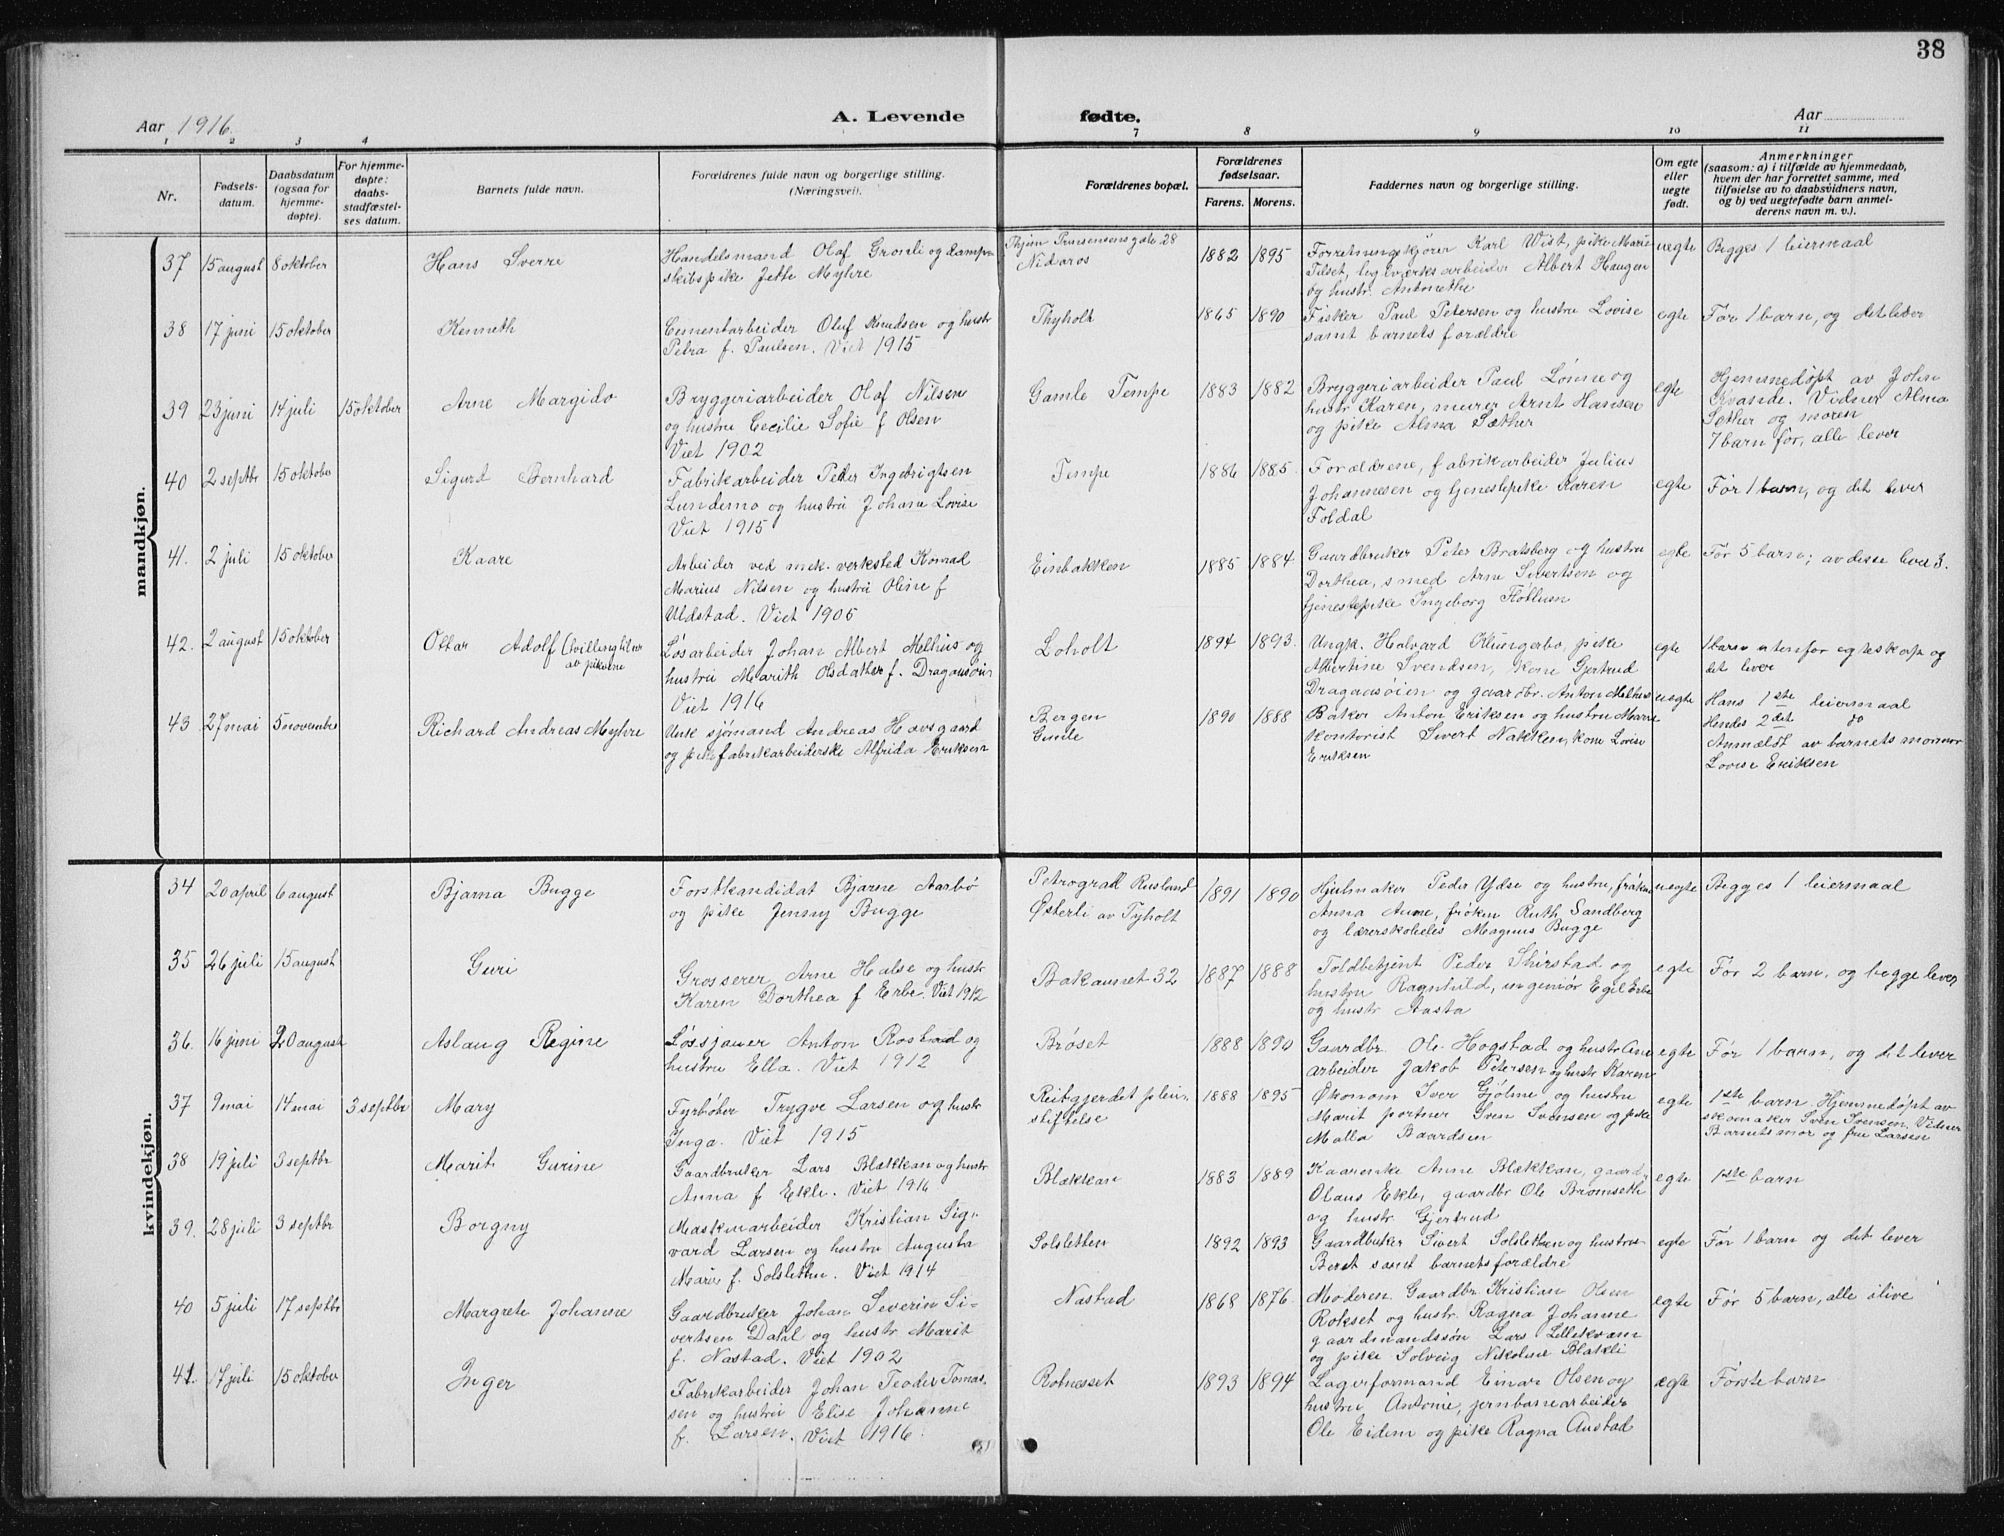 38
Aar 1916.
A. Levende fødte.
Aar
1 2 3 4 7 8 9 10 11
Nr.
Fødsels-
datum.
Daabsdatum
(ogsaa for
hjemme-
døpte).
For hjemme-
døpte:
daabs-
stadfæstel-
ses datum.
Barnets fulde navn.
Forældrenes fulde navn og borgerlige stilling.
(Næringsvei).
Forældrenes bopæl.
Forældrenes
fødselsaar.
Farens. Morens.
Faddernes navn og borgerlige stilling.
Om egte
eller
uegte
født.
Anmerkninger
(saasom: a) i tilfælde av hjemmedaab,
hvem der har forrettet samme, med
tilføielse av to daabsvidners navn,
og b) ved uegtefødte barn anmel-
derens navn m. v.).
mandkjøn.
37 15 august 8 oktober
Hans Sverre
Handelsmand Olaf Gronli og damp-
skibspike Jette Myhre
Nidaros
1882 1895
Karl Wist, pike Marie
Tilset, arbeider Albert Haugen
og hustr. Antonethe
uegte
Begges 1 leiermaal
38 17 juni 15 oktober
Kenneth
Cementarbeider Oluf Knudsen og hustr
Petra f. Paulsen. Viet 1915
Thyholt
1865 1890
Fisker Paul Petersen og hustru Lovise
samt barnets forældre
egte
Før 1 barn, og det lever
39 23 juni 14 juli 15 oktober
Arne Margido
Bryggeriarbeider Olaf Nilsen
og hustru Cecilie Sofie f Olsen
Viet 1902
Gamle Tempe
1883 1882
Bryggeriarbeider Paul Lønne og
hustr. Karen, murer Arnt Hansen
og pike Alma Sæther
egte
Hjemmedøpt av John
Kvande. Vidner Alma
Sæther og moren
7 barn før, alle lever
40 2 septbr 15 oktober
Sigurt Bernhard
Fabrikarbeider Peder Ingebrigtsen
Lundemo og hustru Johana Lovise
Viet 1915
Tempe
1886 1885
Forældrene, fabrikarbeider Julius
Johannesen og tjenestepike Karen
Foldal
egte
Før 1 barn, og det lever
41. 2 juli 15 oktober
Kaare
Arbeider ved mek. verksted Konrad
Marius Nilsen og hustru Oline f
Aldstad. Viet 1905
Einbakken
1885 1884
Gaardbruker Peter Bratsberg og hustru
Dorthea, smed Arne Sivertsen og
tjenestepike Ingeborg Flotten
egte
Før 5 barn; av disse lever 3.
42. 2 august 15 oktober
Ottar Adolf (tvilling til
av pikerne
Løsarbeider Johan Albert Melhus og
hustru Marith Olsdatter f. Dragaasøien
Viet 1916
Loholt
1894 1893.
Ungk. Halvard Klungerbo, pike
Albertine Svendsen, kone Gjertrud
Dragaasøien og gaardbr. Anton Melhus
egte
1 barn utenfor egteskap og
det lever
43 27 mai 5 november
Richard Andreas Myhre
Unk sjømand Andreas Havsgaard
og pike fabrikarbeiderske Alfrida Eriksen
Bergen
Gimle
1890 1888
Baker Anton Eriksen og hustru Marie
kontorist Sivert Nakken, kone Lovise
Eriksen
uegte
Hans 1ste leiermaal
Hendes 2det do
Anmeldt av barnets mormor
Lovise Eriksen
kvindekjøn.
34 20 april 6 august
Bjarna Bugge
Forstkandidat Bjarne Aarbo
og pike Jenny Bugge
Petrograd Rusland
Østerli av Tyholt
1891 1890
Hjulmaker Peder Ydse og hustru, frøken
Anna Aune, frøken Ruth Sandberg
og lærerskoleelev Magnus Bugge
uegte
Begges 1 leiermaal
35 26 juli 15 august
Guri
Grosserer Arne Halse og hustr
Karen Dorthea f Erbe. Viet 1912
Bakaunet 32
1887 1888
Toldbetjent Peder Skirstad og
hustru Ragnhild, ingeniør Egil Erbe
og hustr Aasta
egte
Før 2 barn, og begge lever
36. 16 juni 20 august
Aslaug Regine
Løssjauer Anton Rostad og
hustru Ella. Viet 1912
Brøset
1888 1890
Gaardbr. Ole Hogstad og hustr Ane
arbeider Jakob Petersen og hustr Karen
egte
Før 1 barn, og det lever
37 9 mai 14 mai 3 septbr
Mary
Fyrbøter Trygve Larsen og hustr
Inga. Viet 1915
Reitgjerdet pleie-
stiftelse
1888 1895
Økonom Iver Gjølme og hustru
Marit portner Sven Svensen og pike
Malla Baardsen
egte
1ste barn. Hjemmedøpt av
skomaker Sven Svensen. Vidner
Barnets mor og fru Larsen
38 19 juli 3 septbr
Marit Gurine
Gaardbruker Lars Blækkan og hustr
Anna f Ekle. Viet 1916
Blækkan
1883 1889
Anne Blækkan, gaardbr
Olaus Ekle, gaardbr Ole Bromseth
og hustr Gjertrud
egte
1ste barn
39. 28 juli 3 septbr
Borgny
Maskinarbeider Kristian Sig-
vard Larsen og hustru Augusta
Marie f. Solsletten. Viet 1914
Solsletten
1892 1893
Gaardbuker Sivert Solsletten og hustru
Beret samt barnets forældre
egte
Før 1 barn og det lever
40 5 juli 17 septbr
Margrete Johanne
Gaardbruker Johan Severin Si-
vertsen Dalal og hustr Marit
f. Nastad. Viet 1902
Nastad
1868 1876
Moderen Gaardbr Kristian Olsen
Rokset og hustr. Ragna Johanne
gaardmandssøn Lars Lillekvam
og pike Solveig Nikoline Blakli
egte
Før 5 barn, alle ilive
41. 17 juli 15 oktober
Inger
Fabrikarbeider Johan Teodor Tomas-
sen og hustru Elise Johanne
f. Larsen. Viet 1916.
Rotnesset
1893 1894
Lagerformand Einar Olsen og
hustru Antonie, jernbanearbeider
Ole Eidem og pike Ragna Aunstad
ægte
Første barn